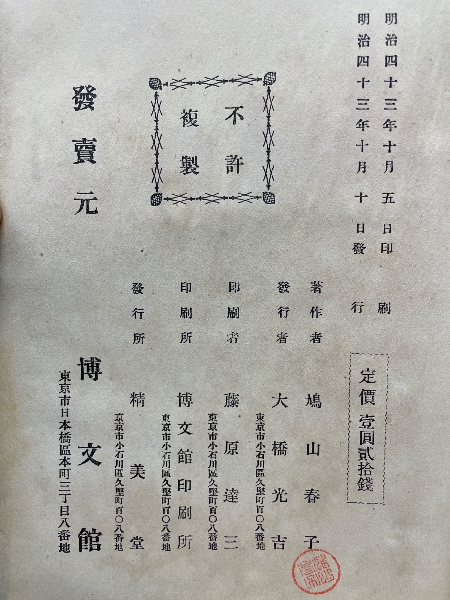 明治四十三年十月五日印刷
明治四十三年十月十日發行
定價壹圓貳拾錢
不許
複製
著作者 鳩山春子
發行者 大橋光吉
東京市小石川區久堅町百〇八番地
印刷者 藤原達三
東京市小石川區久堅町百〇八番地
印刷所 博文館印刷所
東京市小石川區久堅町百〇八番地
發行所 精美堂
東京市小石川區久堅町百〇八番地
發賣元 博文館
東京市日本橋區本町三丁目八番地